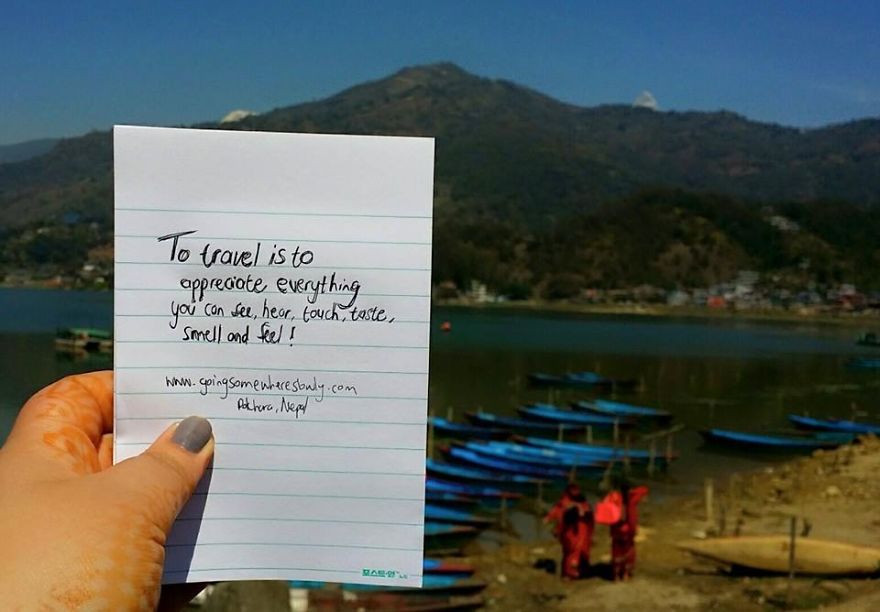 To travel is to
appreciate everything
you can see, hear, touch, taste,
smell and feel!
www.goingsomewhereslowly.com
Pokhara, Nepal
포스트-잇